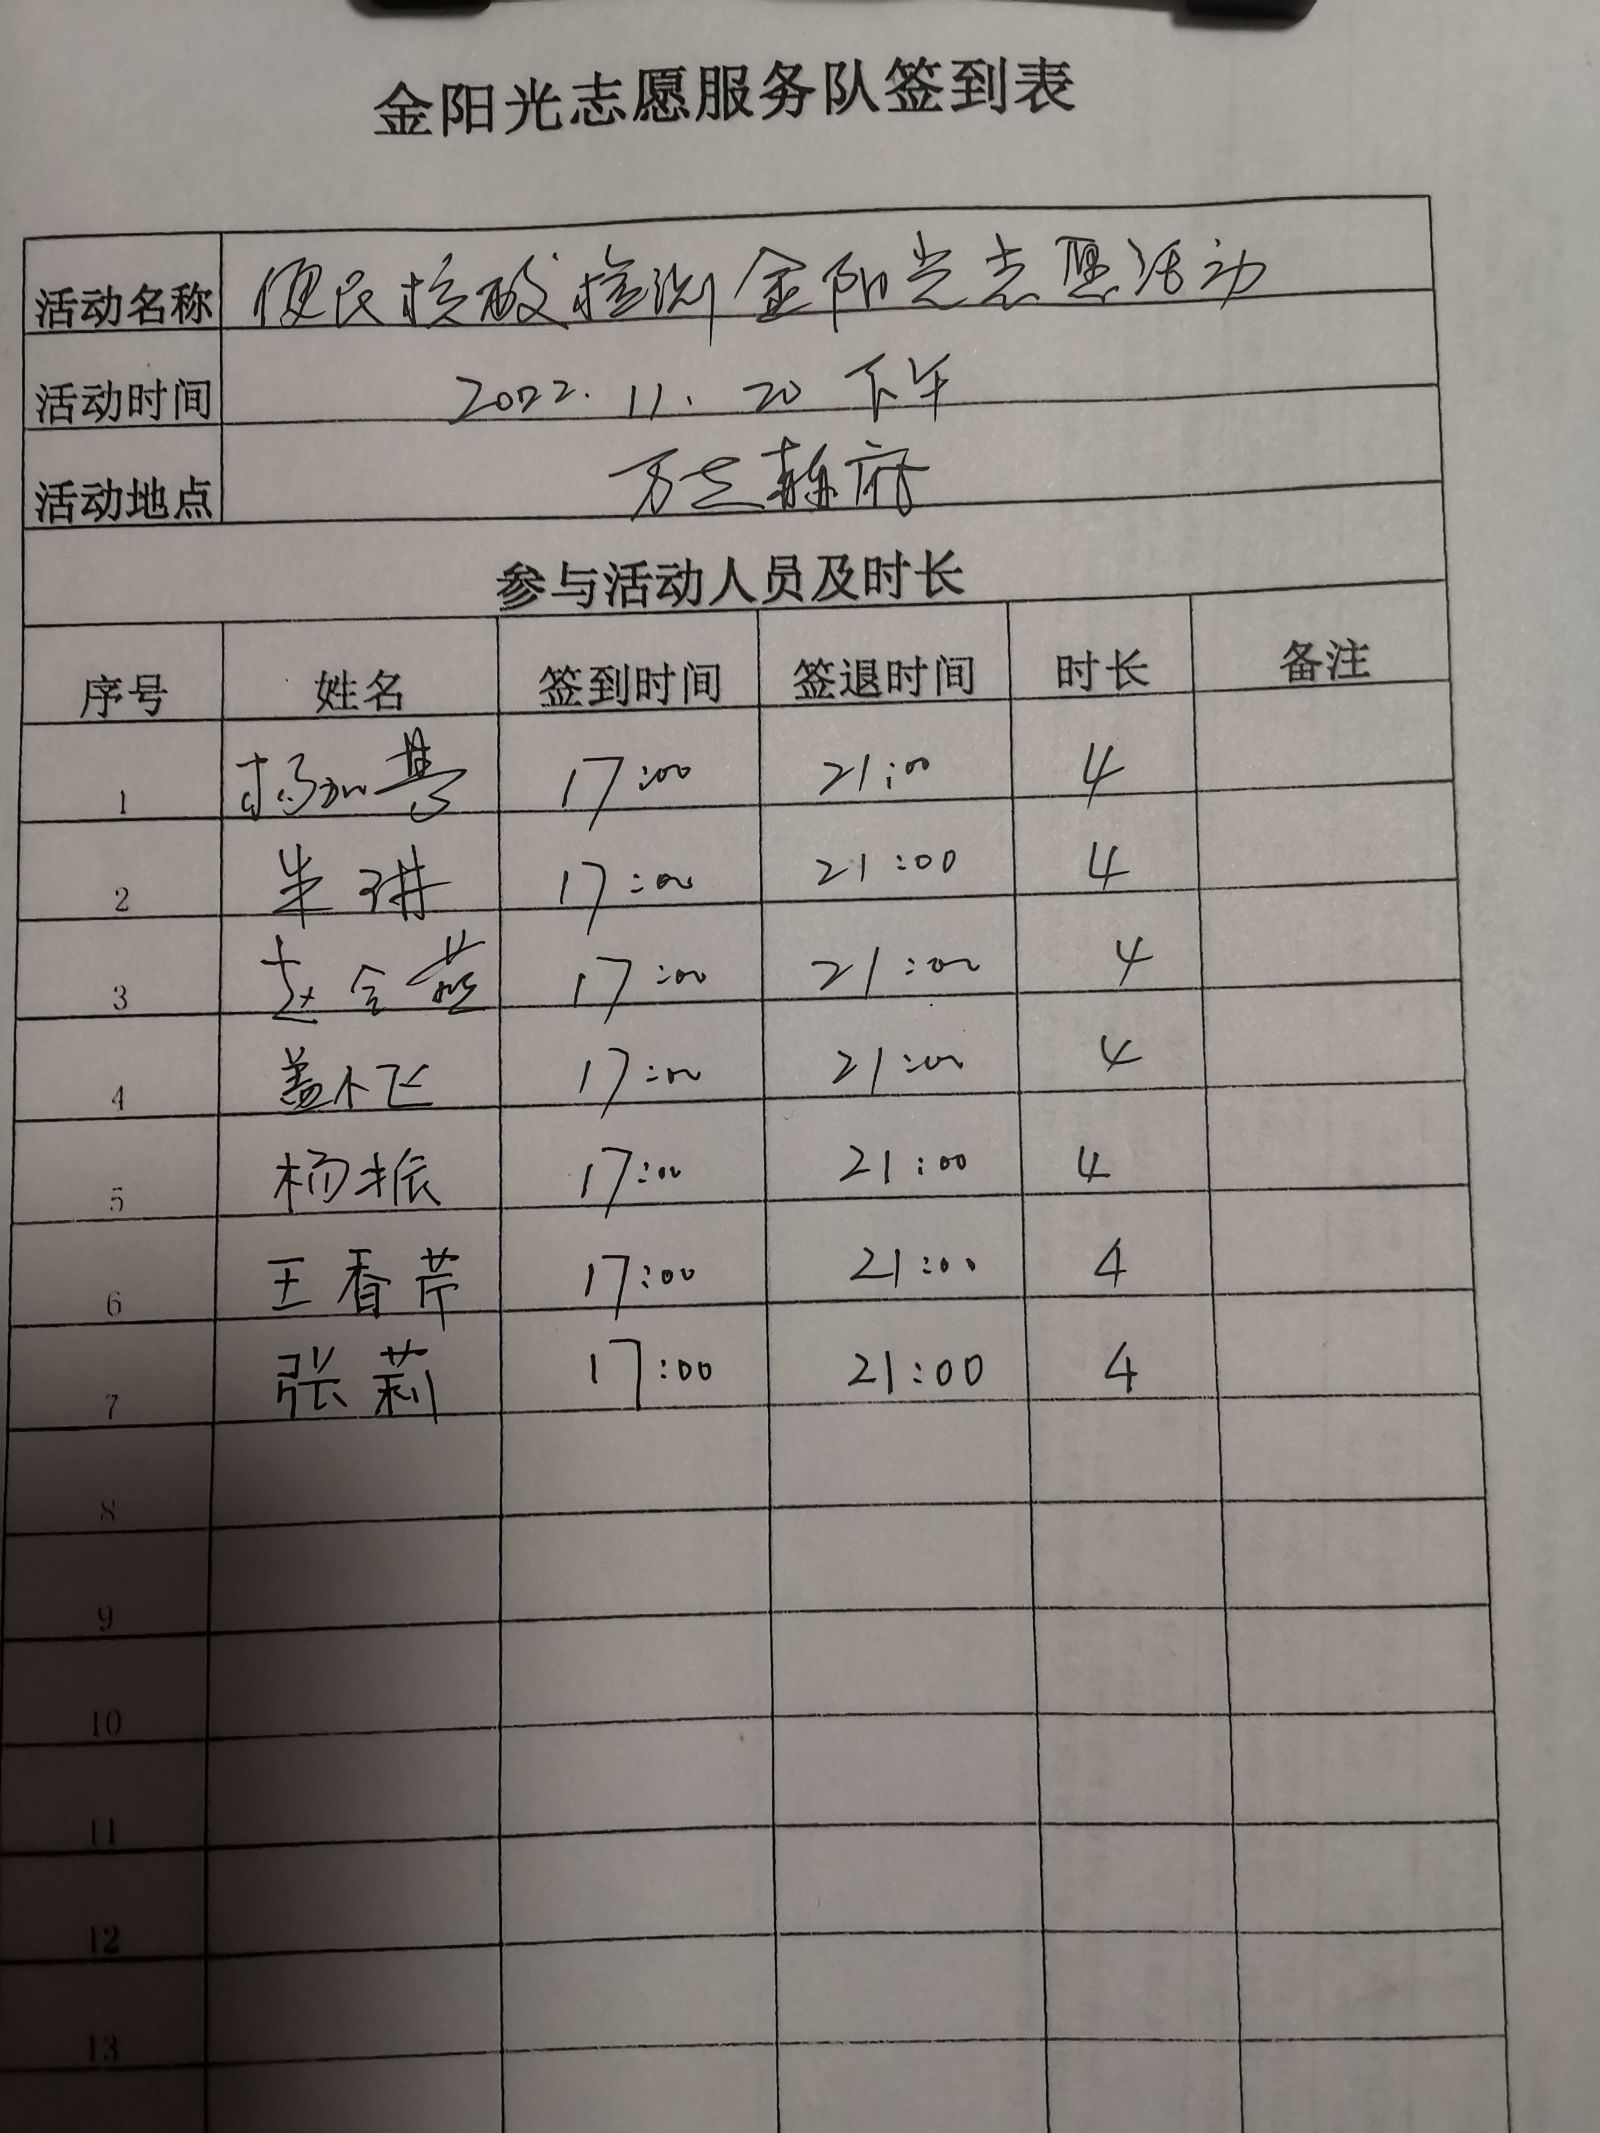 金阳光志愿服务队签到表
活动名称 便民核酸检测金阳光志愿活动
活动时间 2022.11.20 下午
活动地点 万
参与活动人员及时长
序号 姓名 签到时间 签退时间 时长 备注
1 杨 17:00 21:00 4
2 朱琳 17:00 21:00 4
3 赵会燕 17:00 21:00 4
4 盖小飞 17:00 21:00 4
5 杨振 17:00 21:00 4
6 王香芹 17:00 21:00 4
7 张莉 17:00 21:00 4
8
9
10
11
12
13